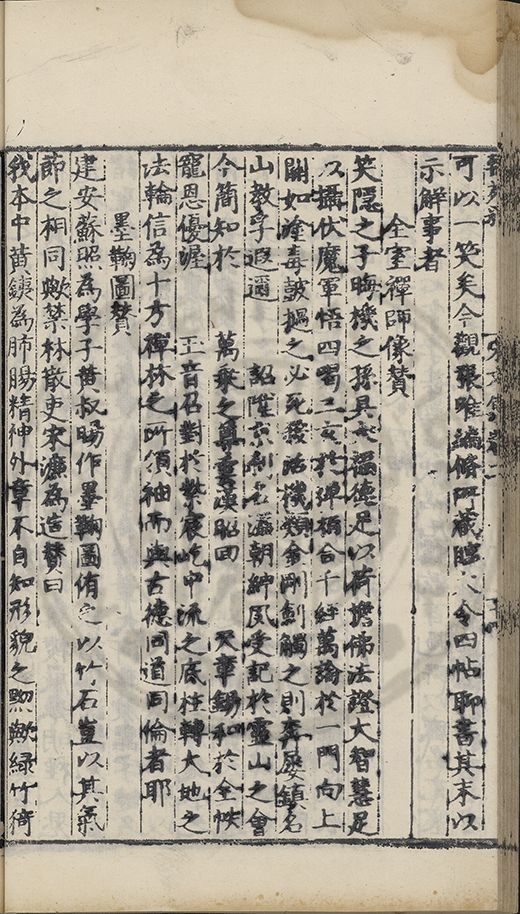 可以一笑矣今觀張唯編脩所藏臨 令四帖聊書其末以
示解事者
全室禪師像贊
笑隱之子晦機之孫具大福德足以荷擔佛法證大智慧足
以攝伏魔軍悟四喝三玄於彈指合千經萬論於一門向上
關如塗毒鼓撾之必死發活機類金剛劍觸之則奔屢鎮名
山教孚遐邇 詔陞京剎名溢朝紳夙受記於靈山之會
今簡知於 萬乘之尊雲漢昭回 天章錫和於全帙
寵恩優渥 玉音召對於禁宸屹中流之底柱轉大地之
法輪信為十方禪林之所領袖而與古德同道同倫者耶
墨鞠圖贊
建安蘇照為學子黃叔暘作墨鞠圖侑之以竹石豈以其氣
節之相同歟禁林散吏宋濂為造贊曰
我本中黃鐵為肺腸精神外章不自知形貌之 歟綠竹猗